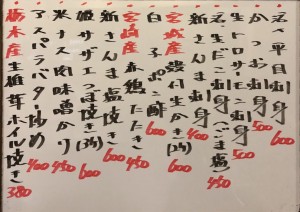 名平目刺身 600
かつお刺身 500
生トロサーモン刺身 500
名生だこ刺身(ごま塩) 450
新さんま刺身 400
宮城産 殻付生かき(1ヶ) 600
白子ポン酢 600
宮崎産 赤鶏たたき
新さんま塩焼き 600
姫サザエつぼ焼き(3ヶ) 600
米ナス肉味噌かけ 450
アスパラバター炒め 400
栃木産生椎茸ホイル焼き 380